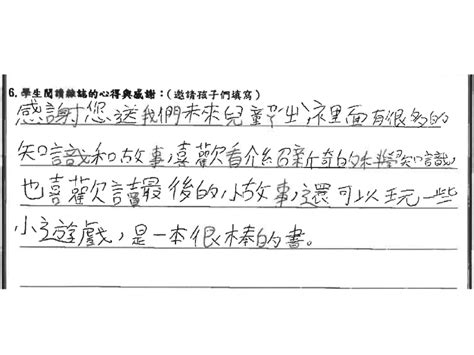 6. 學生閱讀雜誌的心得與感謝:(邀請孩子們填寫)
感謝您送我們未來兒童，裡面有很多的
知識和故事，喜歡看介紹新奇的科學知識，
也喜歡讀最後的小故事，還可以玩一些
小遊戲，是一本很棒的書。